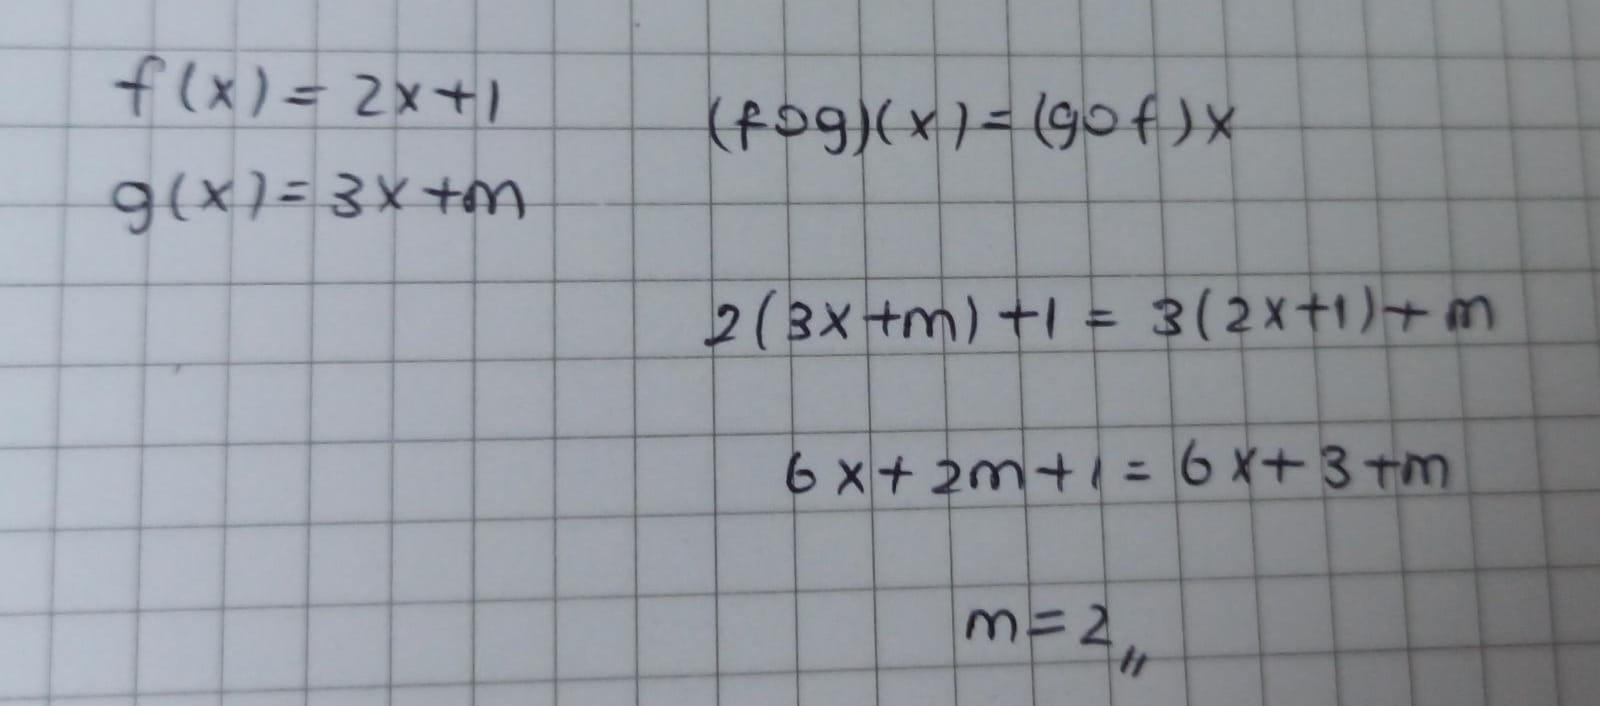 f(x) = 2x+1
g(x) = 3x+m
(fog)(x) = (gof)x
2(3x+m)+1 = 3(2x+1)+m
6x+2m+1 = 6x+3+m
m=2,,